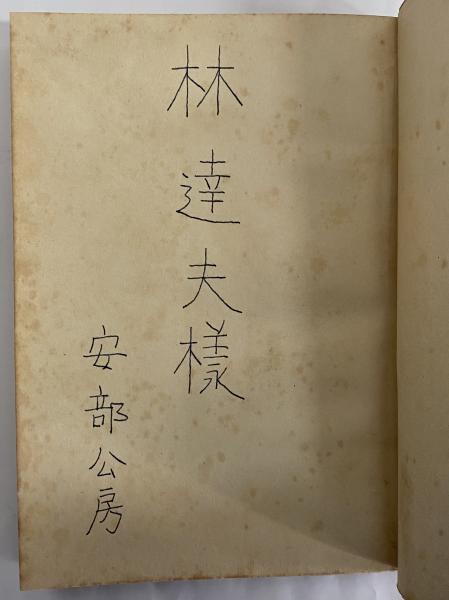 林達夫樣
安部公房